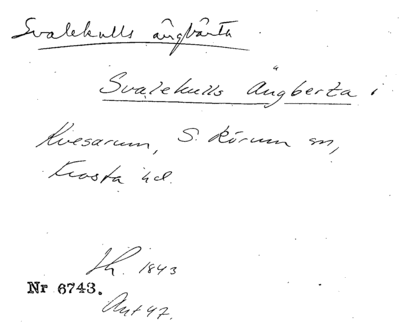 Svalekulls ängbärta
Svalekulls Ängberta i
Kvesarum, S. Rörum sn,
Frosta hd.
Lh. 1843
Nr 6743.
Ant 47.